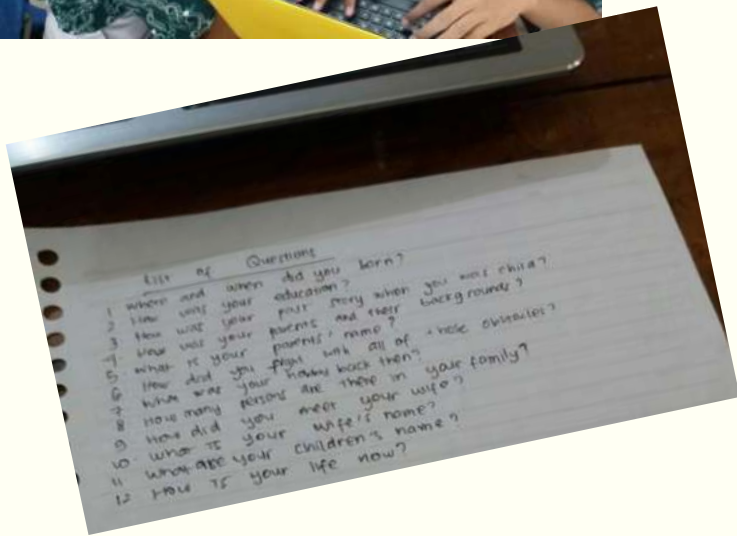 List of Questions
1 Where and when did you born?
2 How was your education?
3 How was your past story when you was child?
4 How was your parents and their backgrounds?
5 What is your parents' name?
6 How did you fight with all of these obstacles?
7 What was your hobby back then?
8 How many persons are there in your family?
9 How did you meet your wife?
10. What is your wife's name?
11 What are your children's name?
12 How is your life now?